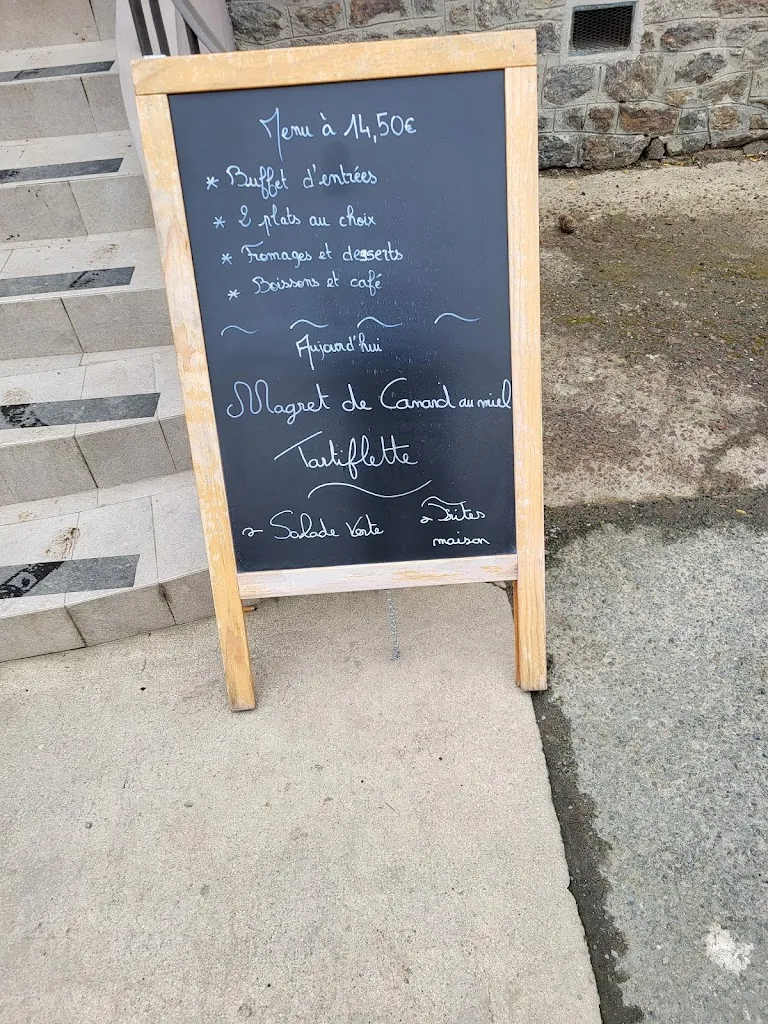 Menu à 14,50€
* Buffet d'entrées
* 2 plats au choix
* Fromages et desserts
* Boissons et café
Aujourd'hui
Magret de Canard au miel
Tartiflette
Salade Verte
Frites
maison